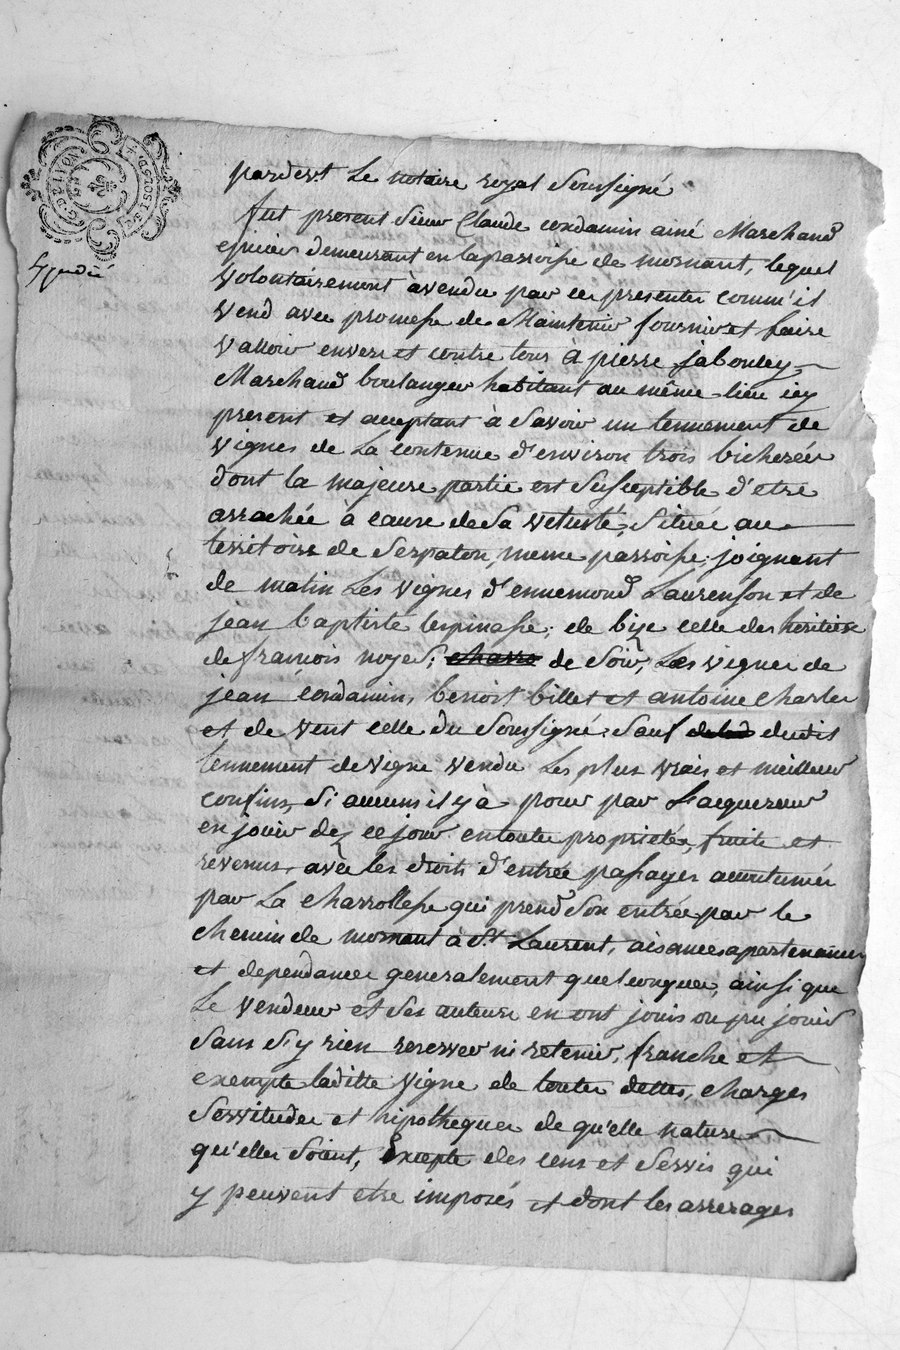 G. DE LYON
pardevt. Le notaire royal Soussigné
fut present Sieur Claude condamin ainé Marchand
epicier demeurant en la parroisse de mornant, lequel
volontairement à vendu par ces presentes comm'il
vend avec promesse de Maintenir fournir et faire
valloir envers et contre tous à pierre jabouley
Marchand boulanger habitant au même lieu icy
present et acceptant à Savoir un tennement de
vignes de La contenue d'environ trois bicherées
dont la majeure partie est susceptible d'etre
arrachée à cause de Sa vetusté, Située au
territoire de Serpaton, meme parroisse; joignant
de matin Les vignes d'ennemond Laurenson et de
jean baptiste lespinasse; de bize celle des heritiers
de francois noyer; charro de Soir, Les vignes de
jean Condamin, benoit billet et antoine Charles
et de vent celle du Soussigné. Sauf dudit
tennement de vigne vendu Les plus vrais et meilleurs
confins, Si aucuns il y à pour par L'acquereur
en jouir dez ce jour en toutes proprietés, fruits et
revenus, avec les droits d'entrée passages accoutumés
par La charrollesse qui prend Son entrée par le
chemin de mornant à St. Laurent, aisances apartenances
et dependances generalement quelconques, ainsi que
Le vendeur et Ses auteurs en ont jouis ou pu jouir
Sans S'y rien reserver ni retenir, franche et
exempte laditte vigne de toutes dettes, charges
Servitudes et hipotheques de qu'elle nature
qu'elles Soient, Excepte des cens et Servis qui
y peuvent etre imposés et dont les arrerages